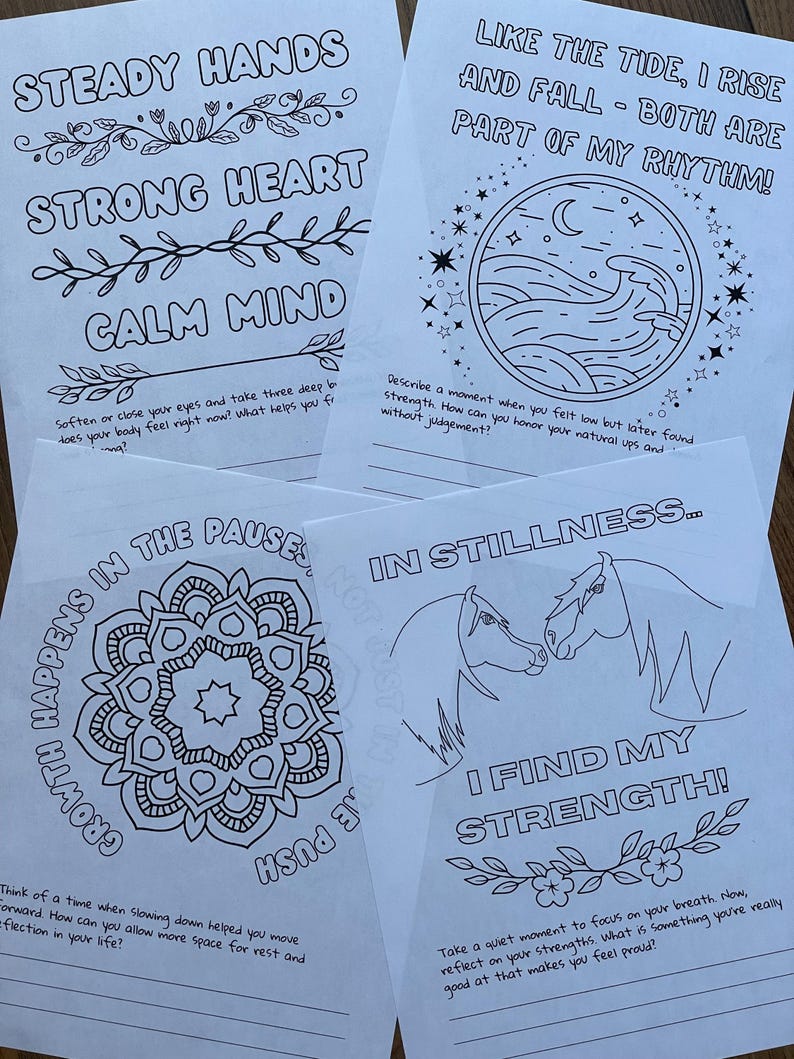 STEADY HANDS
STRONG HEART
CALM MIND
Soften or close your eyes and take three deep
does your body feel right now? What helps you
LIKE THE TIDE, I RISE
AND FALL - BOTH ARE
PART OF MY RHYTHM!
Describe a moment when you felt low but later found
strength. How can you honor your natural ups and
without judgement?
GROWTH HAPPENS IN THE PAUSES, NOT JUST IN THE PUSH
Think of a time when slowing down helped you move
forward. How can you allow more space for rest and
reflection in your life?
IN STILLNESS...
I FIND MY
STRENGTH!
Take a quiet moment to focus on your breath. Now,
reflect on your strengths. What is something you're really
good at that makes you feel proud?